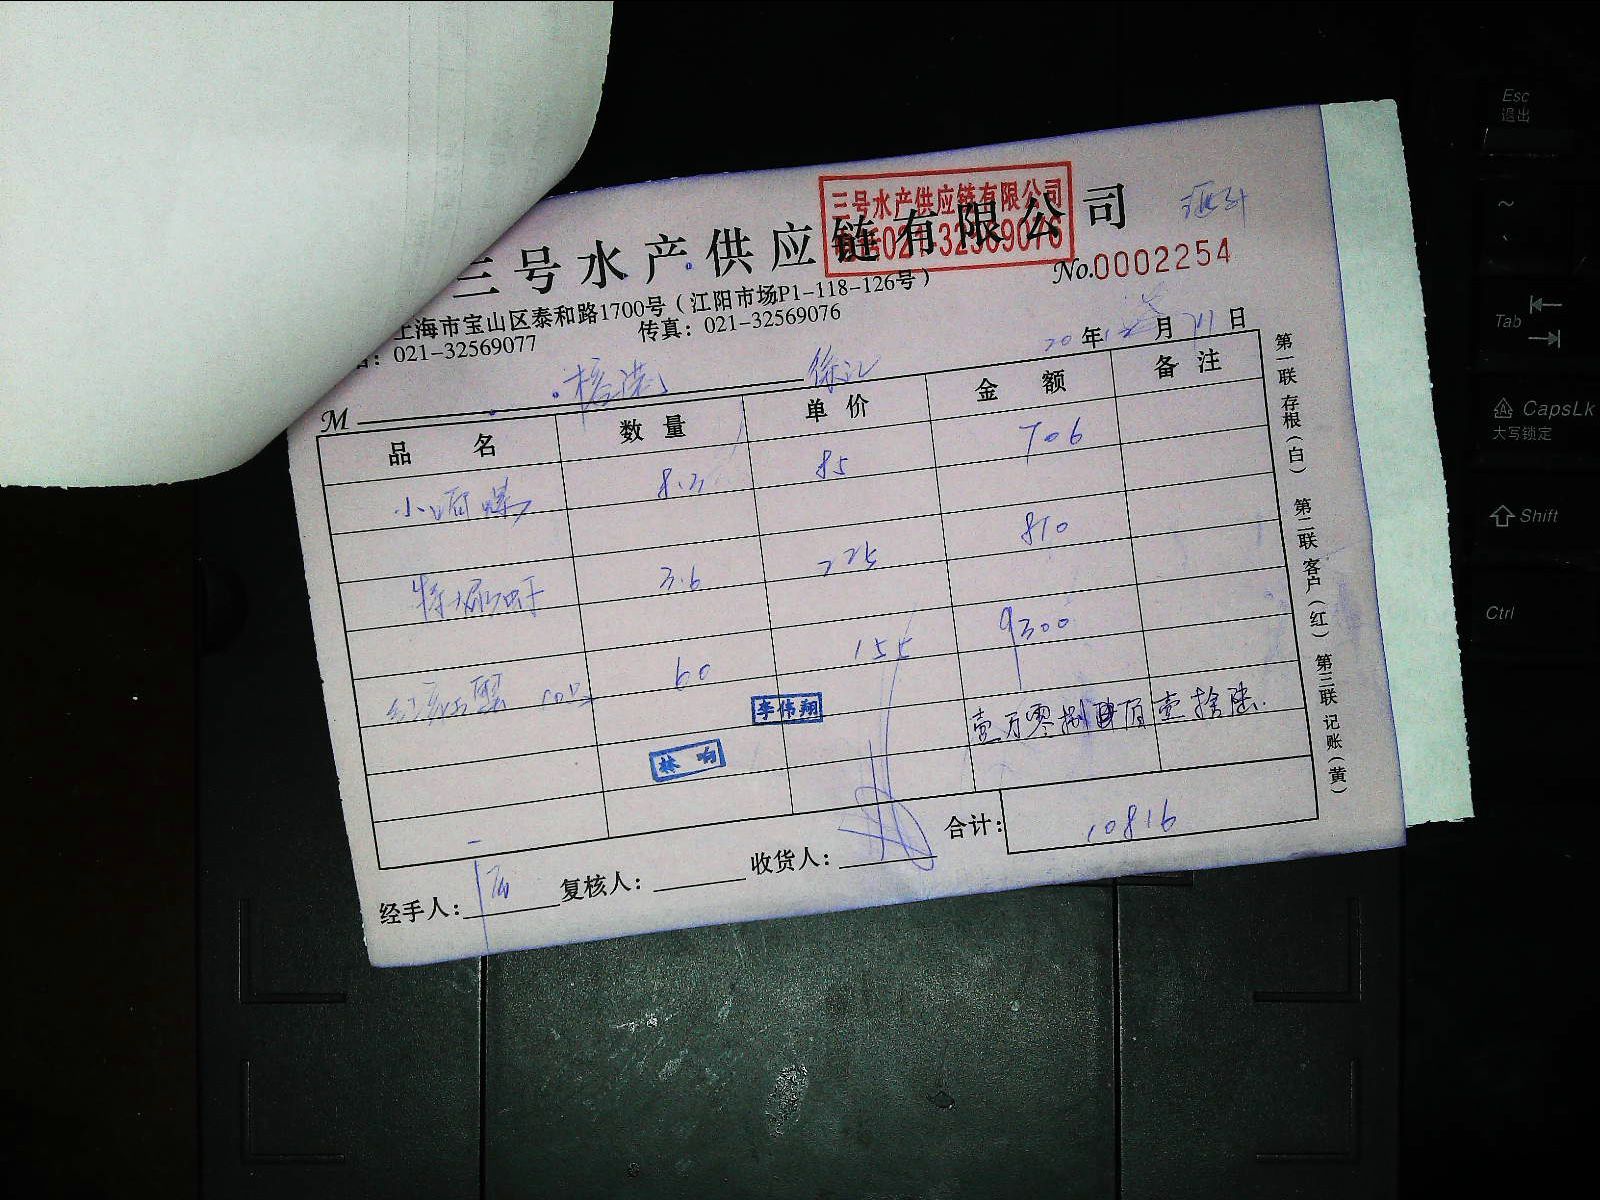 三号水产供应链有限公司
三号水产供应链有限公司
021-32569076
No.0002254
上海市宝山区泰和路1700号（江阳市场P1-118-126号）
021-32569077 传真：021-32569076
20年12月11日
M 徐汇
品名 数量 单价 金额 备注
8.3 85 706
3.6 225 810
60 155 9300
李伟翔
壹万零捌佰壹拾陆
林响
合计： 10816
经手人： 复核人： 收货人：
第一联 存根（白） 第二联 客户（红） 第三联 记账（黄）
Esc
退出
~
Tab
CapsLk
大写锁定
Shift
Ctrl